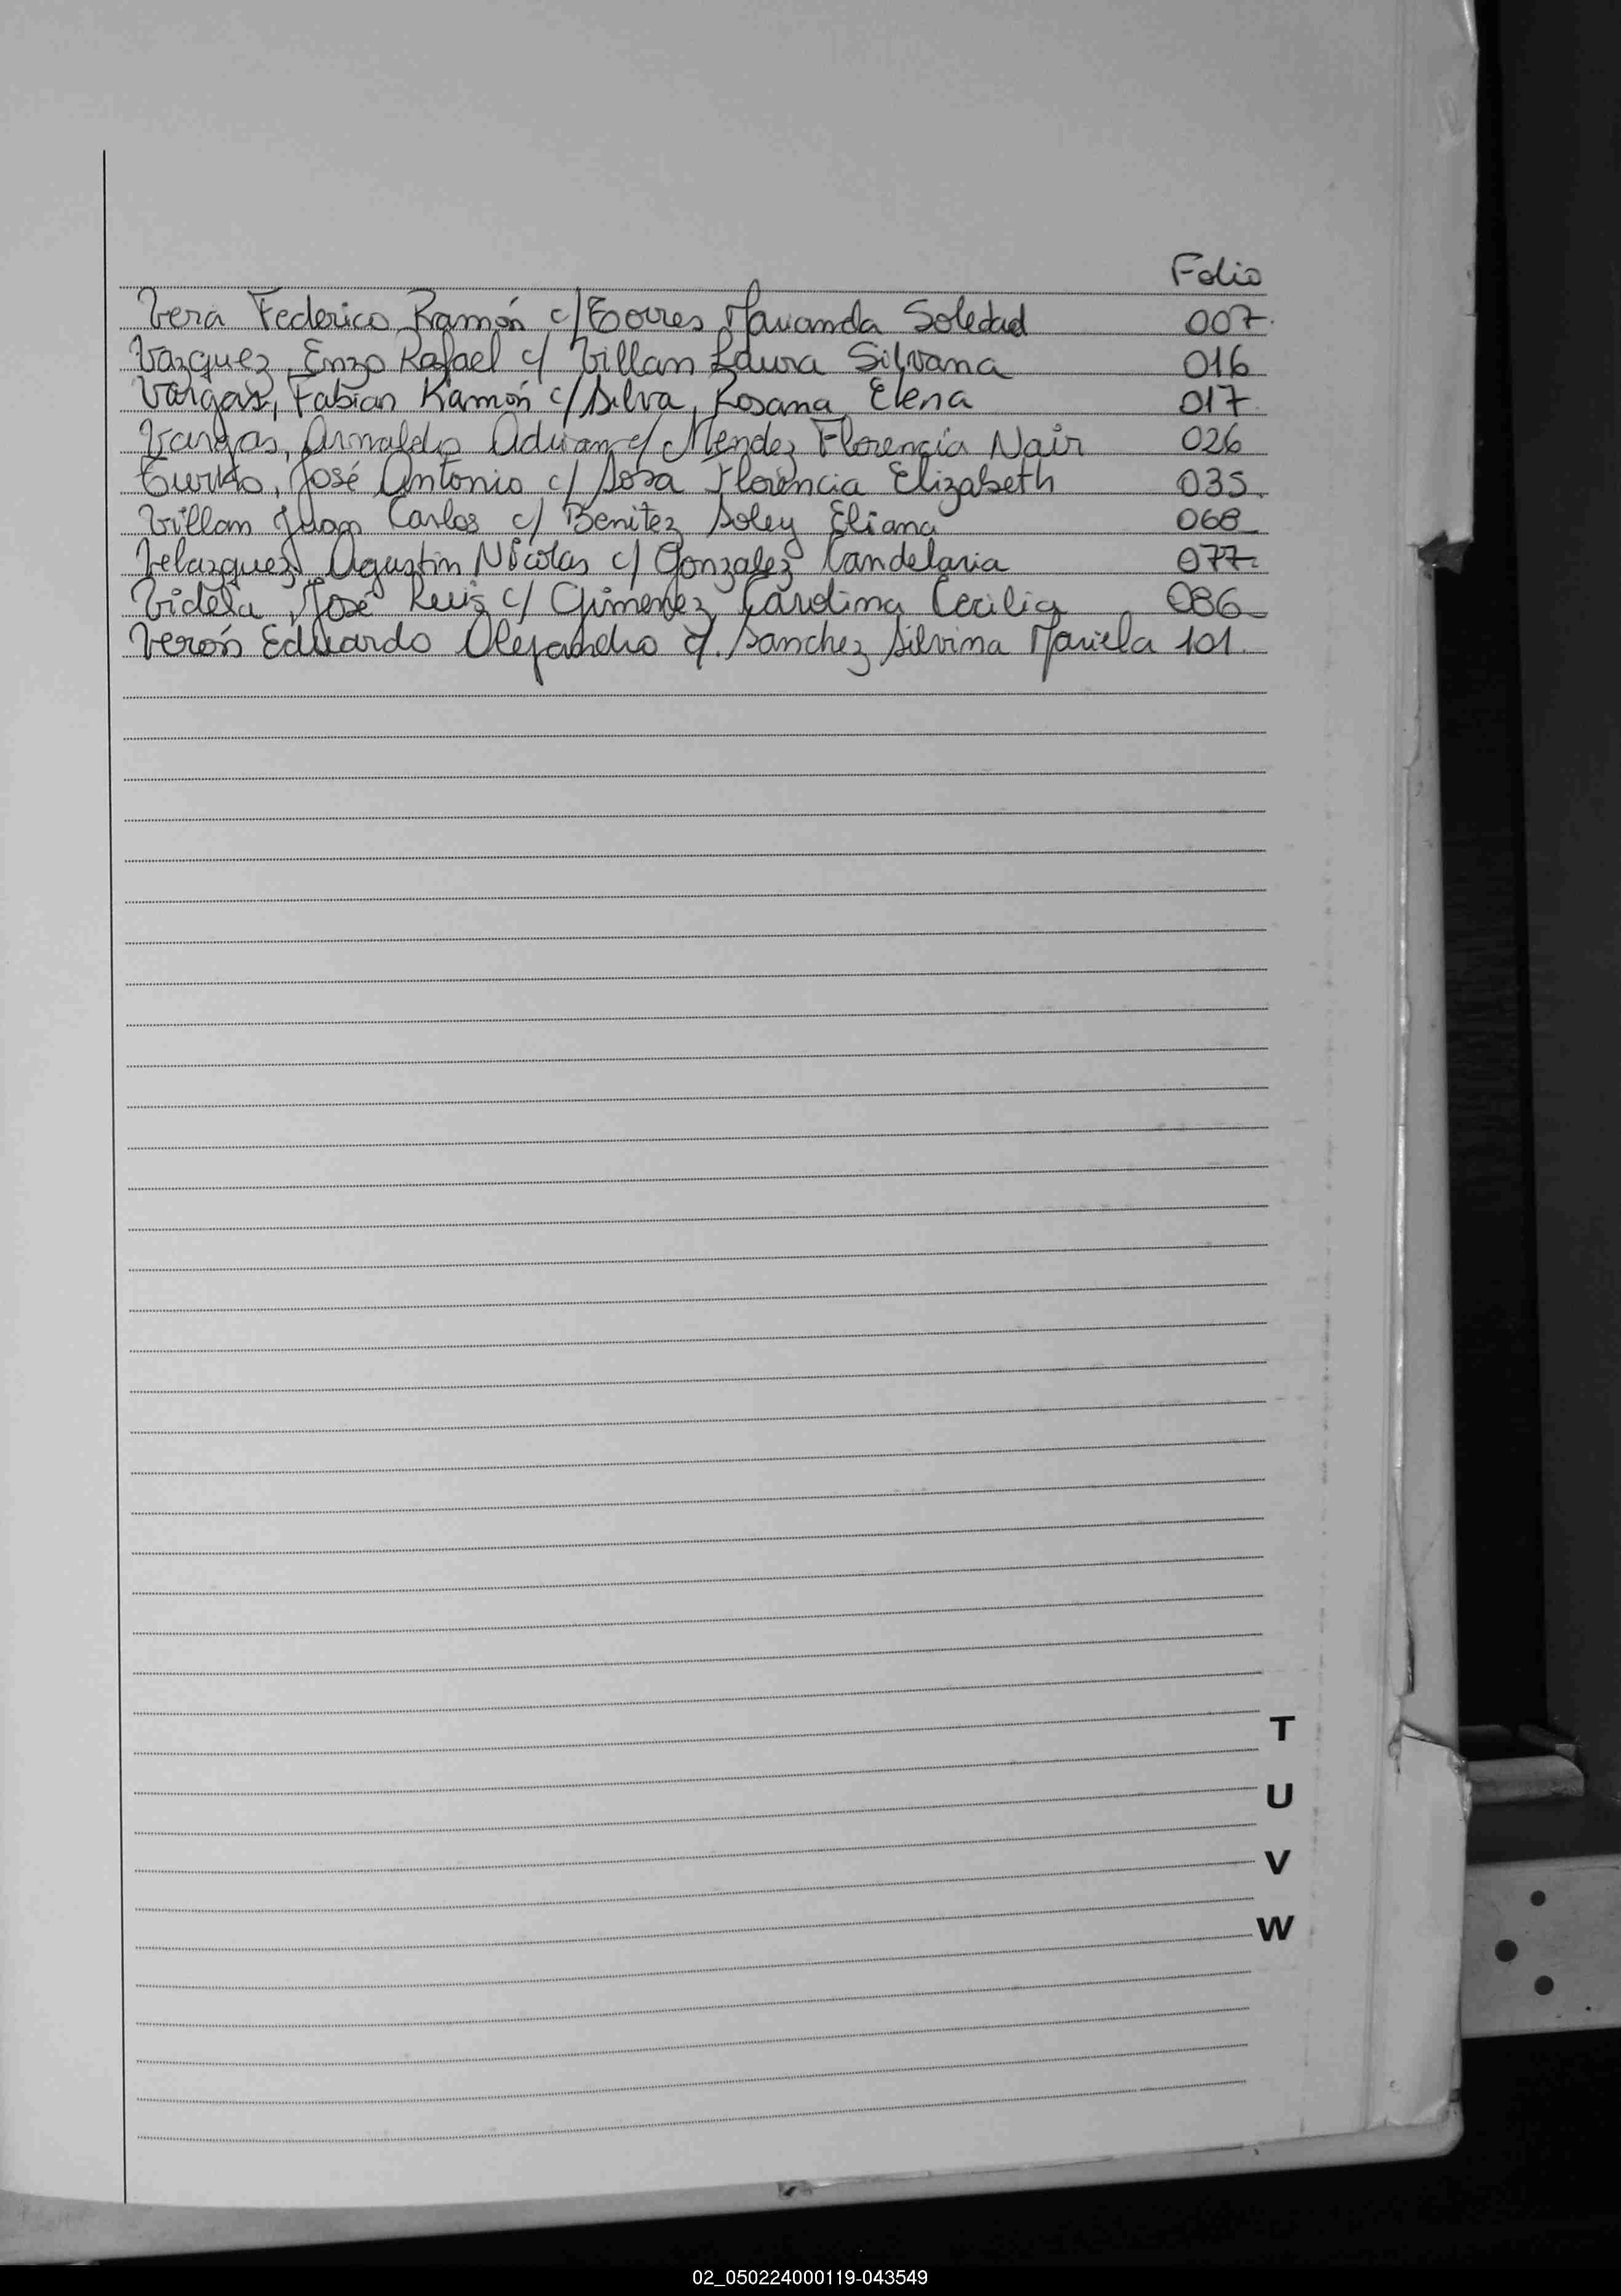 Folio
Vera Federico Ramón c/ Torres Marianda Soledad 007.
Vazquez, Enzo Rafael c/ Villan Laura Silvana 016
Vargas, Fabian Ramón c/ Silva, Rosana Elena 017.
Vargas, Arnaldo Adrian c/ Mendez Florencia Nair 026
José Antonio c/ Sosa Florencia Elizabeth 035.
Villan Juan Carlos c/ Benitez Soley Eliana 068
Velazquez, Agustin Nicolas c/ Gonzalez Candelaria 077.
Videla, José Luis c/ Gimenez Carolina Cecilia 086
Verón Eduardo Alejandro c/. Sanchez Silvina Mariela 101.
T
U
V
W
02_050224000119-043549